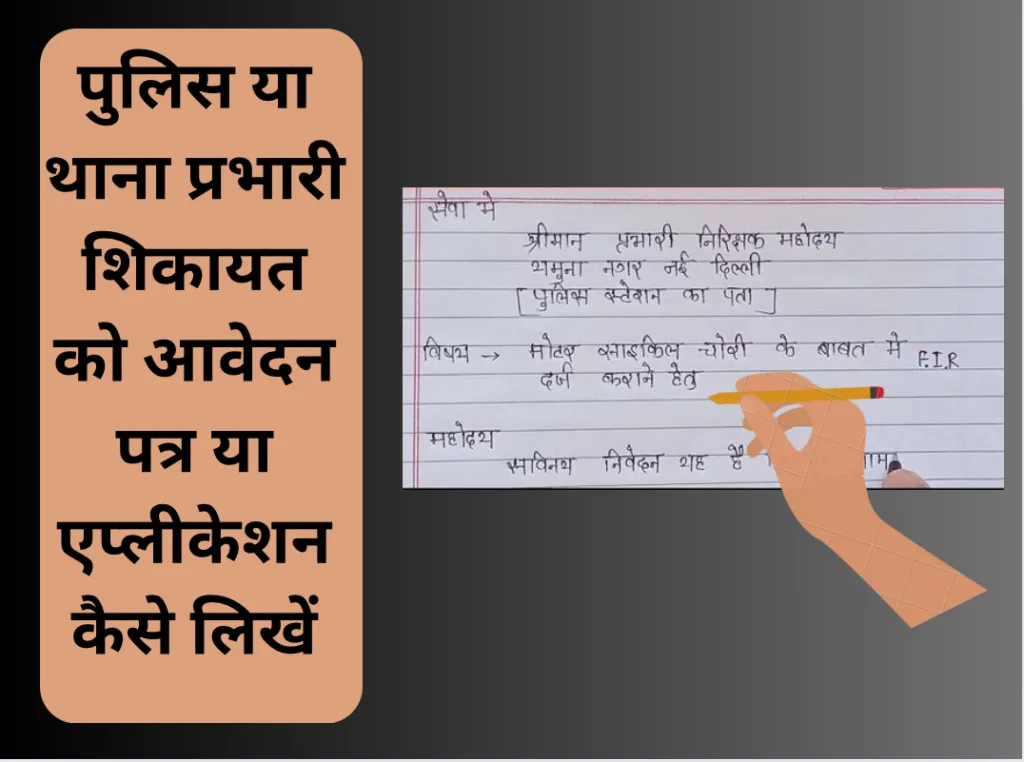 पुलिस या
थाना प्रभारी
शिकायत
को आवेदन
पत्र या
एप्लीकेशन
कैसे लिखें
सेवा मे
श्रीमान प्रभारी निरिक्षक महोदय
यमुना नगर नई दिल्ली
[ पुलिस स्टेशन का पता ]
विषय → मोटर साइकिल चोरी के बाबत मे F.I.R
दर्ज कराने हेतु
महोदय
सविनय निवेदन यह है